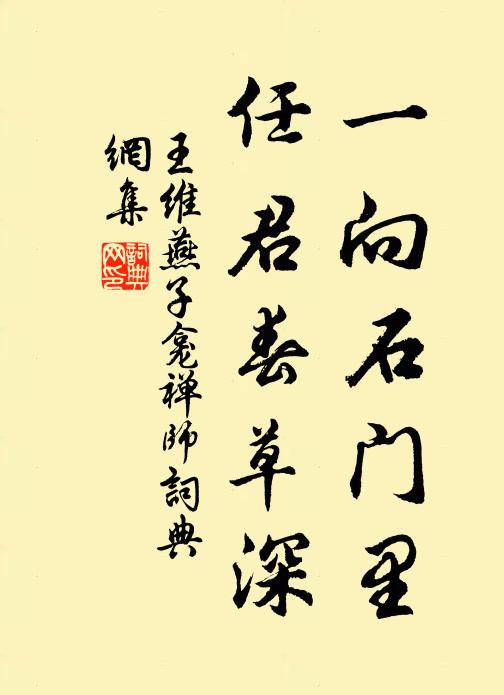 一向石门里
任君春草深
王维燕子龛禅師詞典
網集
詞典
网印